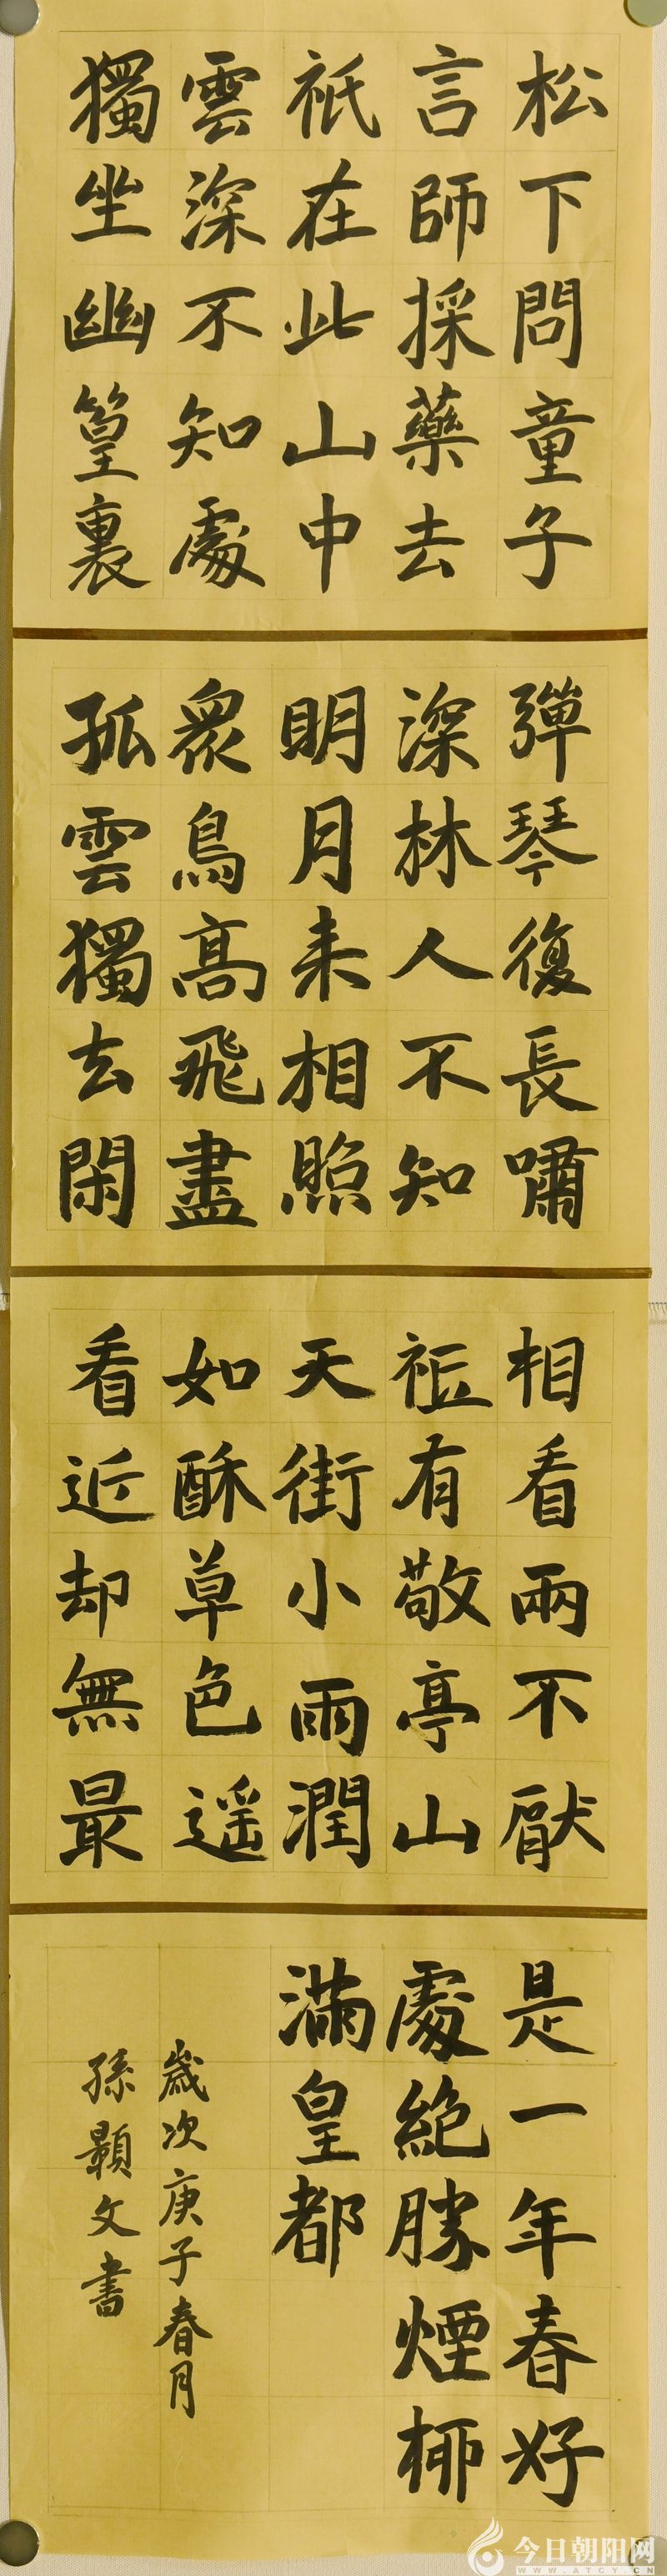 松下問童子
言師採藥去
祇在此山中
雲深不知處
獨坐幽篁裏
彈琴復長嘯
深林人不知
明月来相照
衆鳥高飛盡
孤雲獨去閑
相看兩不厭
祗有敬亭山
天街小雨潤
如酥草色遥
看近却無最
是一年春好
處絶勝煙柳
滿皇都
歲次庚子春月
孫顥文書
今日朝阳网
WWW.ATCYW.CN